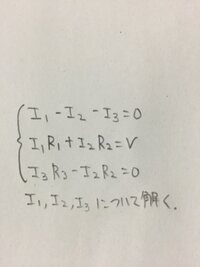 I₁ - I₂ - I₃ = 0
I₁R₁ + I₂R₂ = V
I₃R₃ - I₂R₂ = 0
I₁, I₂, I₃ について解く.